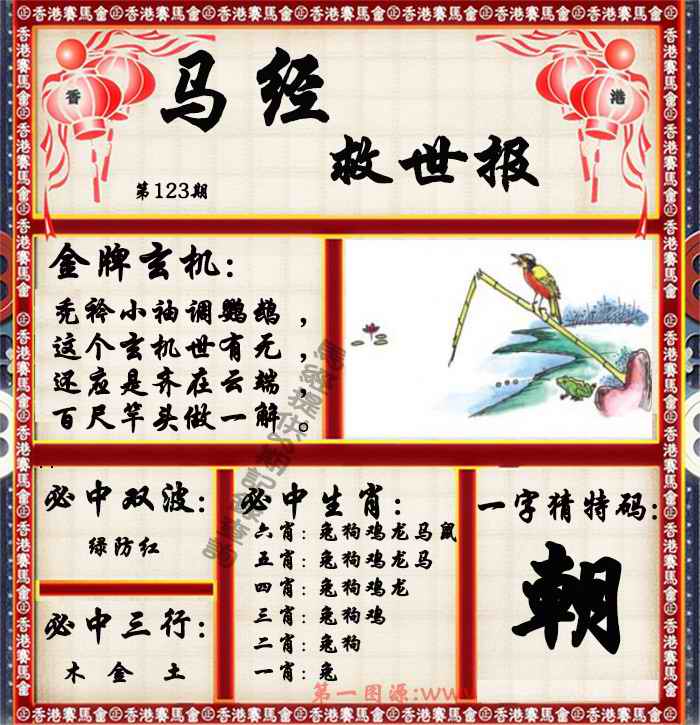 香港賽馬會
香 港
马经
救世报
第123期
金牌玄机：
秃衿小袖调鹦鹉，
这个玄机世有无，
还应是齐在云端，
百尺竿头做一解。
必中双波：
绿防红
必中三行：
木 金 土
必中生肖：
六肖：兔狗鸡龙马鼠
五肖：兔狗鸡龙马
四肖：兔狗鸡龙
三肖：兔狗鸡
二肖：兔狗
一肖：兔
一字猜特码：
朝
第一图源:www